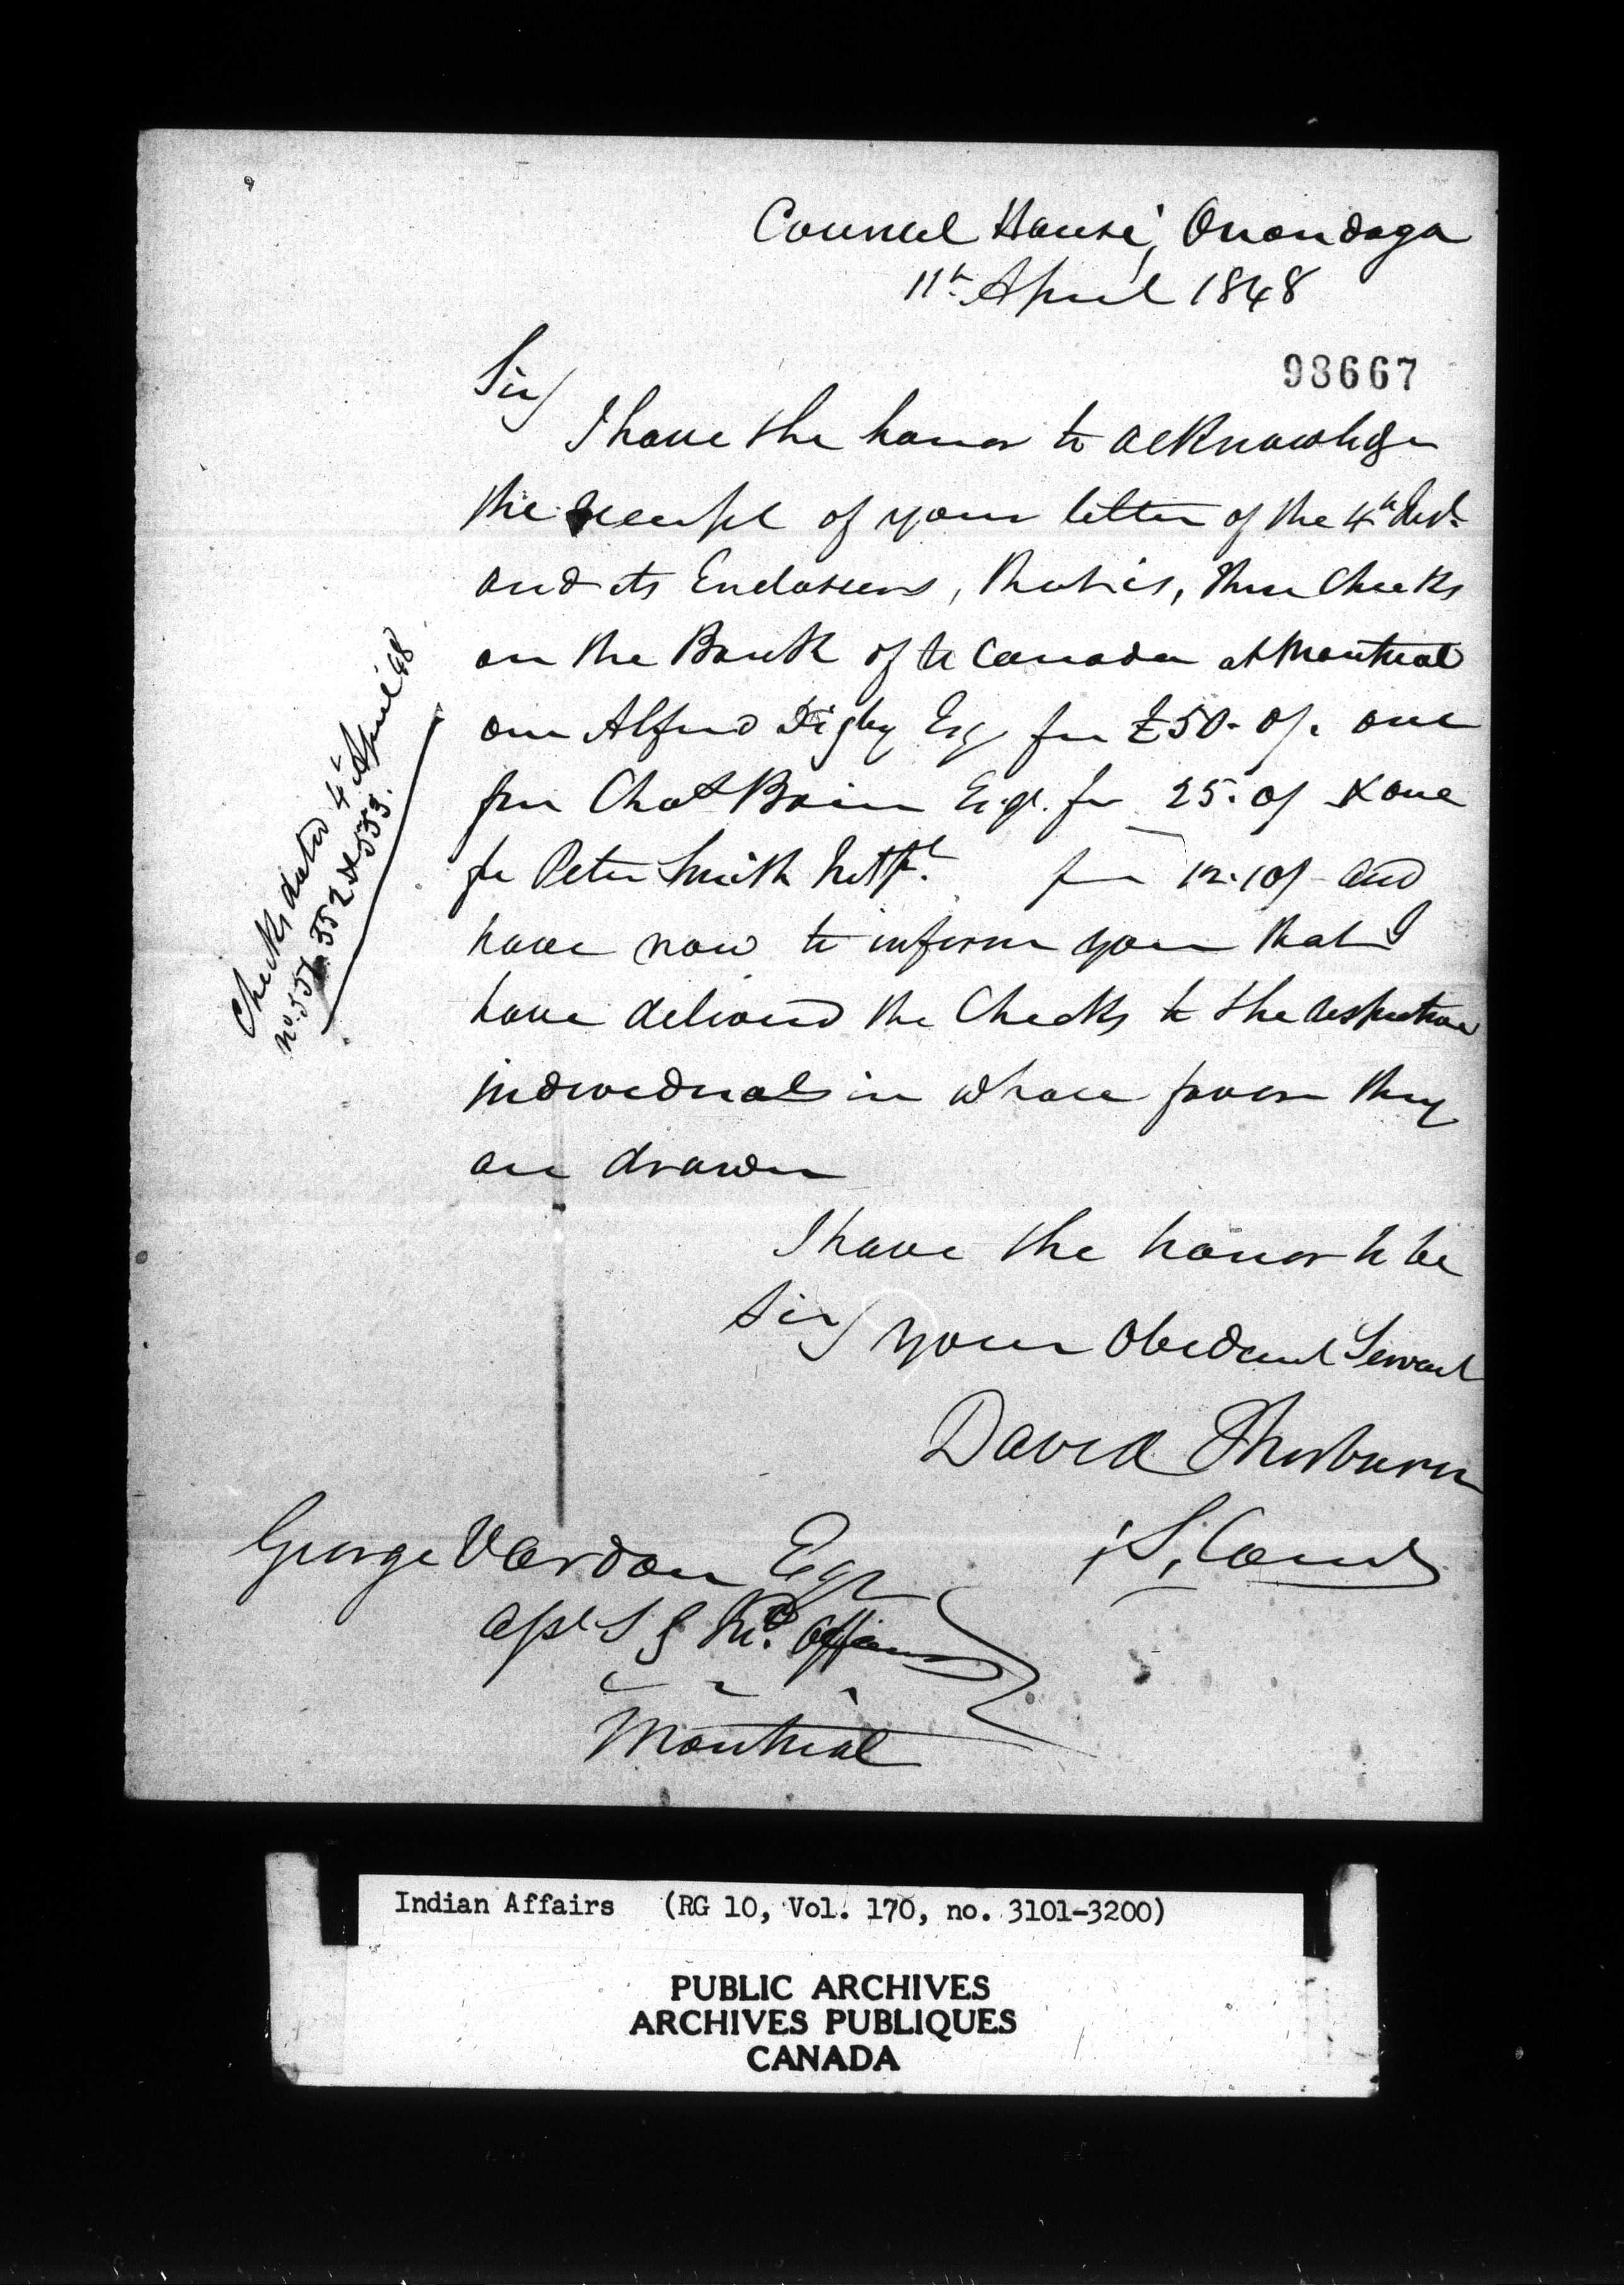 Council House, Onondaga
11th April 1848
98667
Sir/
I have the honor to acknowledge
the receipt of your letter of the 4th Inst
and its Enclosures, that is, three Checks
on the Bank of U Canada at Montreal
one Alfred Digby Esq for £50. 0/. one
for Chas Bain Esqr. for 25. 0/ & one
for Peter Smith for 12. 10/ and
have now to inform you that I
have delivered the Checks to the respective
individuals in whose favor they
are drawn
I have the honor to be
Sir/ your Obedient Servant
David Thorburn
George Vardon Esqr
S G Ind. Affairs
Montreal
Checks dated 4th April 48
No. 551. 552 & 553.
Indian Affairs (RG 10, Vol. 170, no. 3101-3200)
PUBLIC ARCHIVES
ARCHIVES PUBLIQUES
CANADA